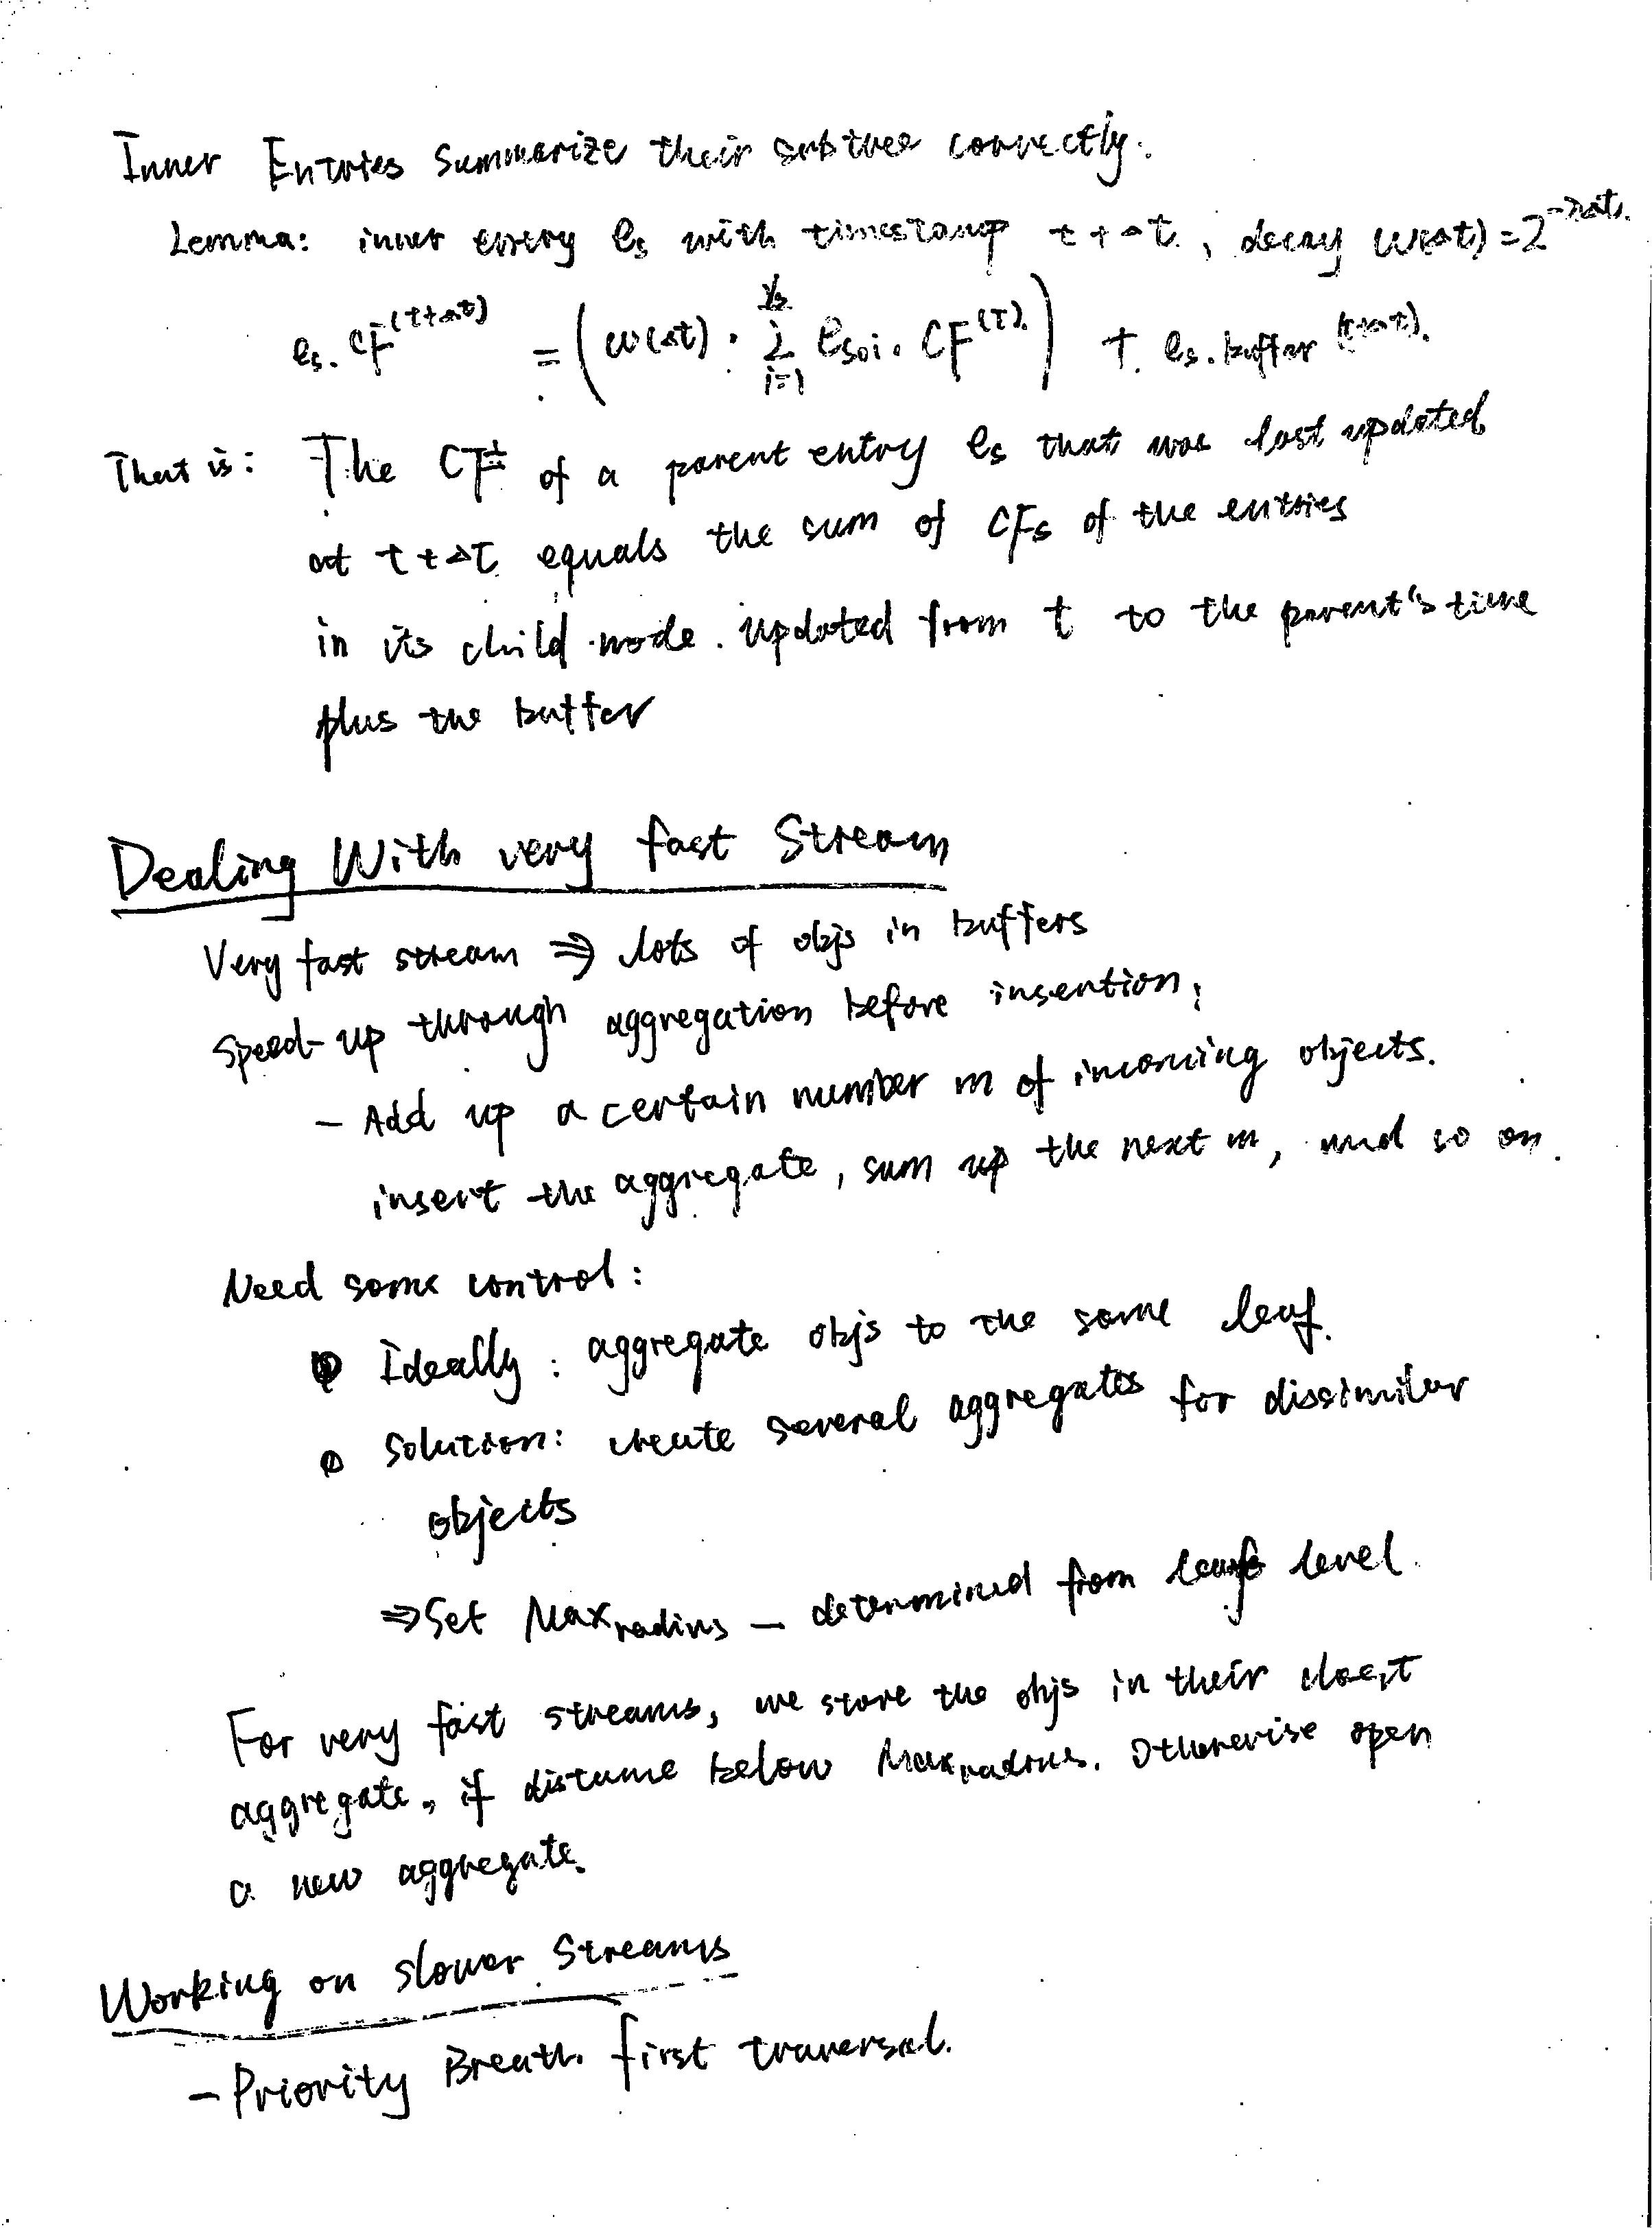 Inner Entries Summarize their subtree correctly.
Lemma: inner every es with timestamp t+Δt, decay w(Δt)=2^-λΔt.
es.CF^(t+Δt) = (w(Δt) · Σ_{i=1}^{νs} es∘i.CF^(t)) + es.buffer^(t+Δt).
That is: The CF of a parent entry es that was last updated
at t+Δt equals the sum of CFs of the entries
in its child node. updated from t to the parent's time
plus the buffer
Dealing With very fast Stream
Very fast stream ⇒ lots of objs in buffers
Speed-up through aggregation before insention;
- Add up a certain number m of incoming objects.
insert the aggregate, sum up the next m, and so on.
Need some control:
• Ideally: aggregate objs to the same leaf.
• Solution: create several aggregates for dissimilar
objects
⇒ Set Maxradius — determined from leaf level.
For very fast streams, we store the objs in their closest
aggregate, if distance below Maxradius. Otherwise open
a new aggregate.
Working on slower Streams
- Priority Breath first traversal.